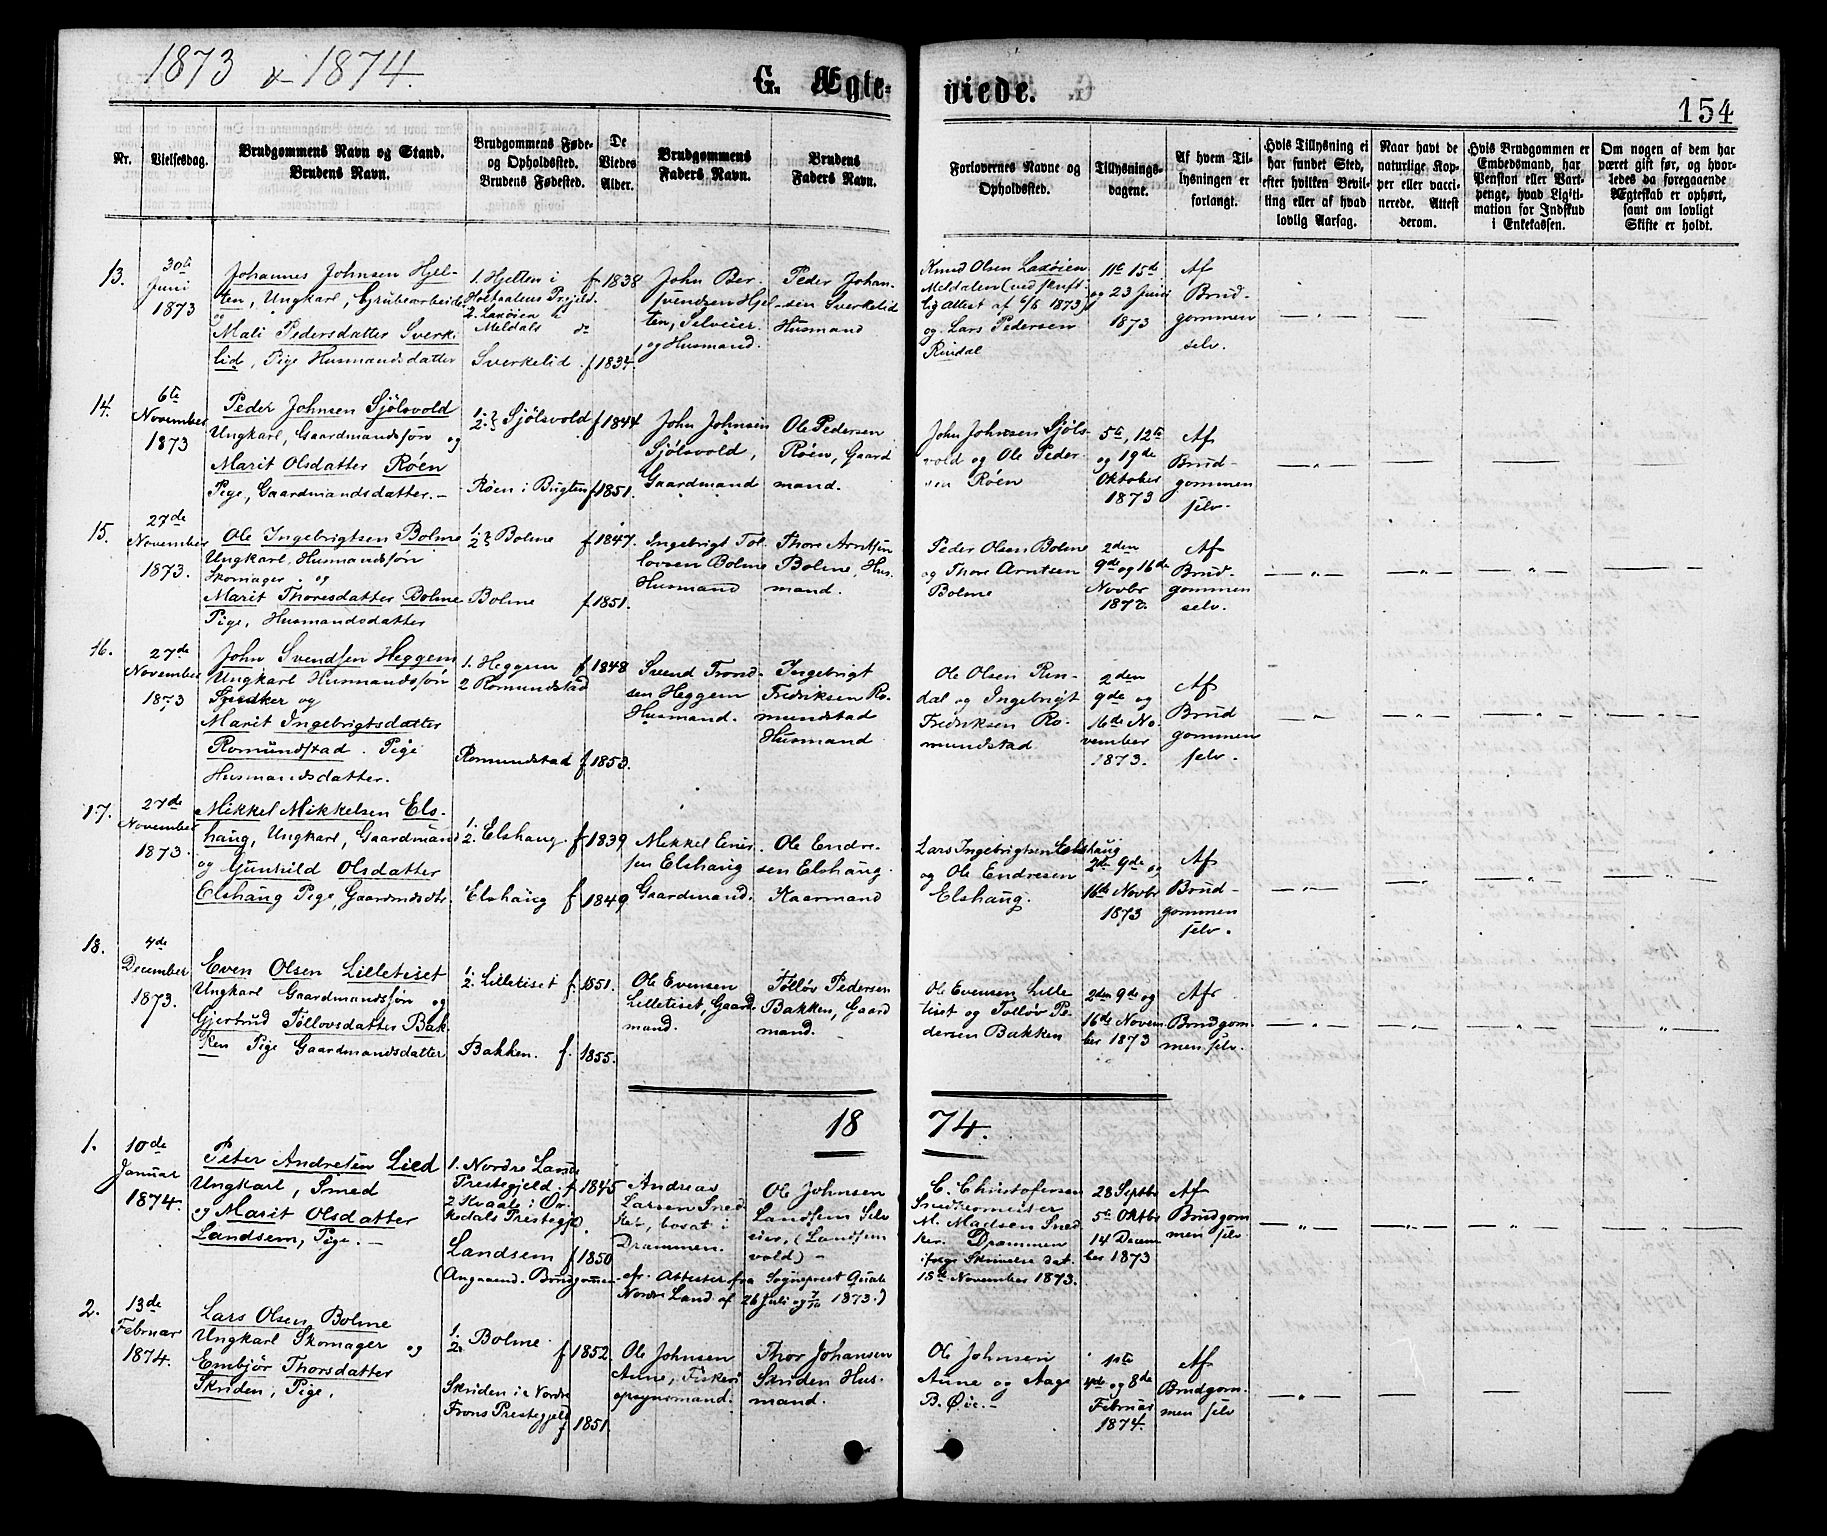 1873 & 1874.
G. Ægte-
viede.
154
Nr.
Vielsesdag.
Brudgommens Navn og Stand.
Brudens Navn.
Brudgommens Føde-
og Opholdssted.
Brudens Fødested.
De
Viedes
Alder.
Brudgommens
Faders Navn.
Brudens
Faders Navn.
Forlovernes Navne og
Opholdssted.
Tillysnings-
dagene.
Af hvem Til-
lysningen er
forlangt.
Hvis Tillysning ei
har fundet Sted,
efter hvilken Bevil-
ling eller af hvad
lovlig Aarsag.
Naar havt de
naturlige Kop-
per eller vacci-
nerede. Attest
derom.
Hvis Brudgommen er
Embedsmand, har
Pension eller Vart-
penge, hvad Ligiti-
mation for Indskud
i Enkekassen.
Om nogen af dem har
været gift før, og hvor-
ledes da foregaaende
Ægteskab er ophørt,
samt om lovligt
Skifte er holdt.
13.
30te
Juni
1873
Johannes Johnsen Hjel-
ten, Ungkarl, Grubearbeider
og
Mali Pedersdatter Sverke-
lid, Pige Husmandsdatter
1. Hjelten i
Holtaalens Prgjeld.
2. Laxøien i
Meldals do
Sverkelid
f 1838
f 1834
John Ber-
svendsen Hjel-
ten, Selveier
og Husmand.
Peder Johan-
sen Sverkelid
Husmand
Knud Olsen Laxøien
Meldalen (ved skrift-
lig Attest af 6/6 1873)
og Lars Pedersen
Rindal
11te 15de
og 23 Juni
1873
Af
Brud-
gommen
selv.
14.
6te
November
1873
Peder Johnsen Sjölsvold
Ungkarl, Gaardmandsføn og
Marit Olsdatter Röen
Pige, Gaardmandsdatter.-
1.
2. Sjölsvold
Röen i Bugten
f 1844
f 1851.
John Johnsen
Sjölsvold,
Gaardmand
Ole Pedersen
Röen, Gaard
mand.
John Johnsen Sjöls-
vold og Ole Peder-
sen Röen
5te, 12te
og 19de
Oktober
1873
Af
Brud-
gommen
selv.
15.
27de
November
1873.
Ole Ingebrigtsen Bolme
Ungkarl, Husmandsføn
Skomager . og
Marit Thoresdatter Bolme
Pige, Husmandsdatter
1.
2. Bolme
Bolme
f 1847.
f 1851.
Ingebrigt Tol-
lovsen Bolme
Husmand
Thore Arntsen
Bolme, Hus-
mand.
Peder Olsen Bolme
og Thore Arntsen
Bolme
2den
9de og 16de
Novbr
1873.
Af
Brud-
gommen
selv.
16.
27de
November
1873
John Svendsen Heggem
Ungkarl Husmandsføn
Snedker og
Marit Ingebrigtsdatter
Romundstad. Pige
Husmandsdatter.
1. Heggem
2 Romundstad
Romundstad
f 1848
f 1853.
Svend Trond-
sen Heggem
Husmand.
Ingebrigt
Fredriksen Ro-
mundstad
Husmand
Ole Olsen Rin-
dal og Ingebrigt
Fredriksen Ro-
mundstad
2den
9de og
16de No-
vember
1873.
Af
Brud
gommen
selv.
17.
27de
November
1873.
Mikkel Mikkelsen Els-
haug, Ungkarl, Gaardmand
og Gunhild Olsdatter
Elshaug Pige, Gaardmdsdtr.
1.
2. Elshaug
Elshaug
f 1839
f 1849
Mikkel Einer-
sen Elshaug
Gaardmand.
Ole Endre-
sen Elshaug
Kaarmand
Lars Ingebrigtsen Elshaug
og Ole Endresen
Elshaug.
2den 9de og
16de Novbr
1873
Af
Brud-
gommen
selv.
18.
4de
December
1873.
Even Olsen Lilletiset
Ungkarl Gaardmandsføn og
Gjertrud Töllovsdatter Bak-
ken Pige Gaardmandsdatter
1.
2. Lilletiset
Bakken.
f. 1851.
f. 1855.
Ole Evensen
Lilletiset, Gaard
mand.
Tølløv Pedersen
Bakken, Gaard
mand.
Ole Evensen Lille
tiset og Tølløv Pe-
dersen Bakken
2den 9de og
16de Novem
ber 1873
Af
Brudgom-
men selv.
18
74.
1.
10de
Januar
1874.
Peter Andresen Lied
Ungkarl, Smed
og Marit Olsdatter
Landsem, Pige.-
1. Nordre Lands
Prestegjeld.
2 Kvaale i Ør-
kedals Prestegjd.
Landsem
f 1845
f 1850
Andreas
Larsen Sned
ker, bosat i
Drammen.
Ole Johnsen
Landsem Selv
eier, (Landsem
vold) -
(Angaaend. Brudgommen cfr. Attester fra Sogneprest Quale
Nordre Land af 26 Juli og 7/10 1873.)
C. Christofersen
Snedkermester
M. Madsen Sned
ker. Drammen
ifølge Skrivelse dat.
15de November 1873.
28 Septbr
5te Oktbr
14 Decem
ber 1873
Af
Brudgom
men selv.
2.
13de
Februar
1874.
Lars Olsen Bolme
Ungkarl Skomager og
Embjör Thorsdatter
Skriden, Pige.
1.
2. Bolme
Skriden i Nordre
Frons Prestegjeld
f 1852.
f 1851.
Ole Johnsen
Aune, Fiskeri
opsynsmand.
Thor Johansen
Skriden Hus-
mand.
Ole Johnsen
Aune og Aage
B. Øie.-
1ste
4de og 8de
Februar
1874.
Af
Brudgom-
men selv